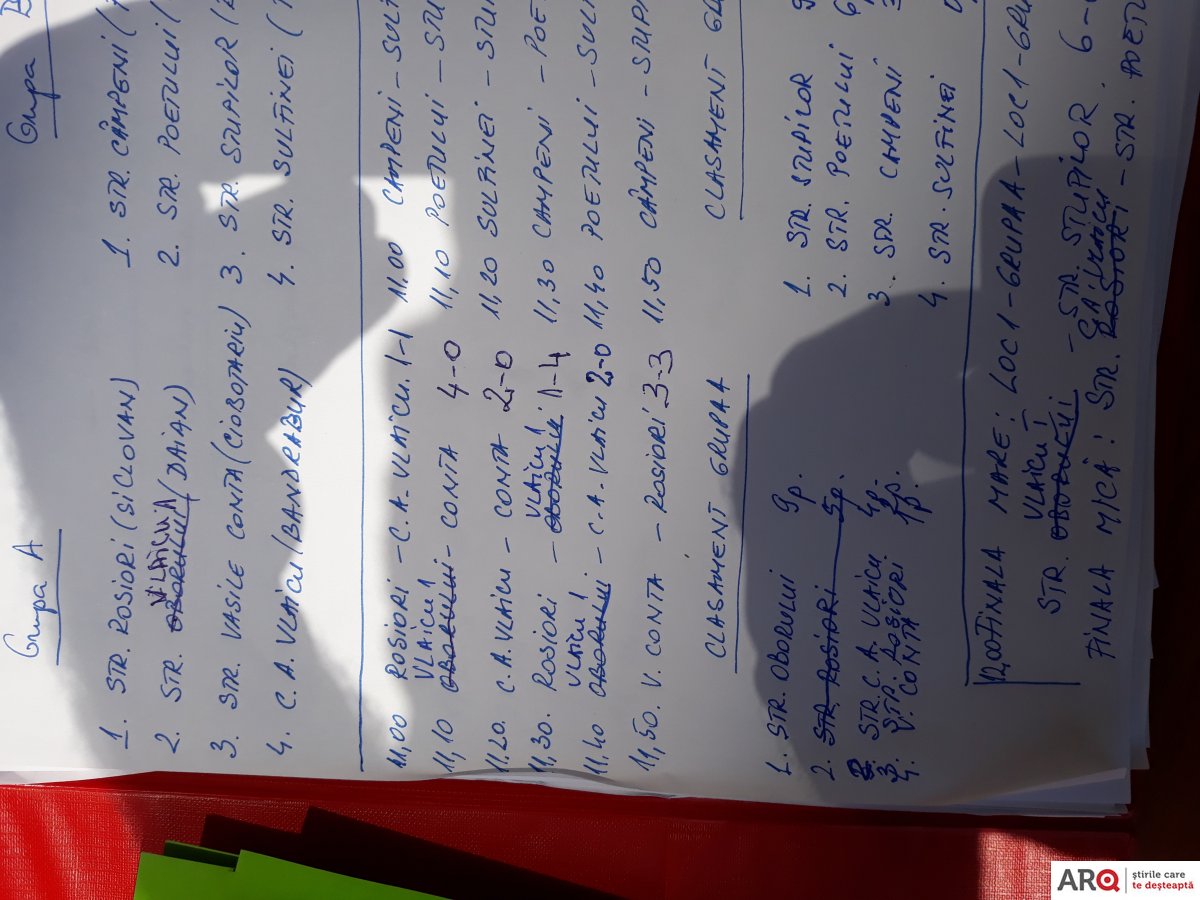 Grupa A
1. STR. ROSIORI (SICLOVAN)
2. STR. VLAICU 1 OBORULUI (DAIAN)
3. STR. VASILE CONTA (CIOBOTARIU)
4. C.A. VLAICU (BANDRABUR)
Grupa
1. STR. CÂMPENI (
2. STR. POETULUI (
3. STR. STUPILOR (
4. STR. SULTINEI (
11,00 ROSIORI - C.A. VLAICU. 1-1
VLAICU 1
11,10 OBORULUI - CONTA 4-0
11.20. C.A. VLAICU - CONTA 2-0
VLAICU 1
11,30. ROSIORI - OBORULUI 1-4
VLAICU 1
11,40 OBORULUI - C.A. VLAICU 2-0
11,50. V. CONTA - ROSIORI 3-3
11.00 CAMPENI - SULT
11,10 POETULUI - STU
11,20 SULTINEI - STU
11,30 CAMPENI - POE
11,40 POETULUI - SUL
11,50 CÂMPENI - STUP
CLASAMENT GRUPA A
1. STR. OBORULUI 9p.
2. STR ROSIORI
2. STR C.A. VLAICU 4p.
3. STR. ROSIORI
4. V. CONTA 1p.
CLASAMENT GRU
1. STR. STUPILOR 9
2. STR. POETULUI 6
3. STR CAMPENI 3
4. STR. SULTINEI
12,00 FINALA MARE: LOC 1 - GRUPA A - LOC 1 - GRU
VLAICU 1
STR. OBORULUI - STR. STUPILOR. 6-
FINALA MICĂ: STR. ROSIORI C.A. VLAICU - STR. POETU
ARQ știrile care
te deșteaptă